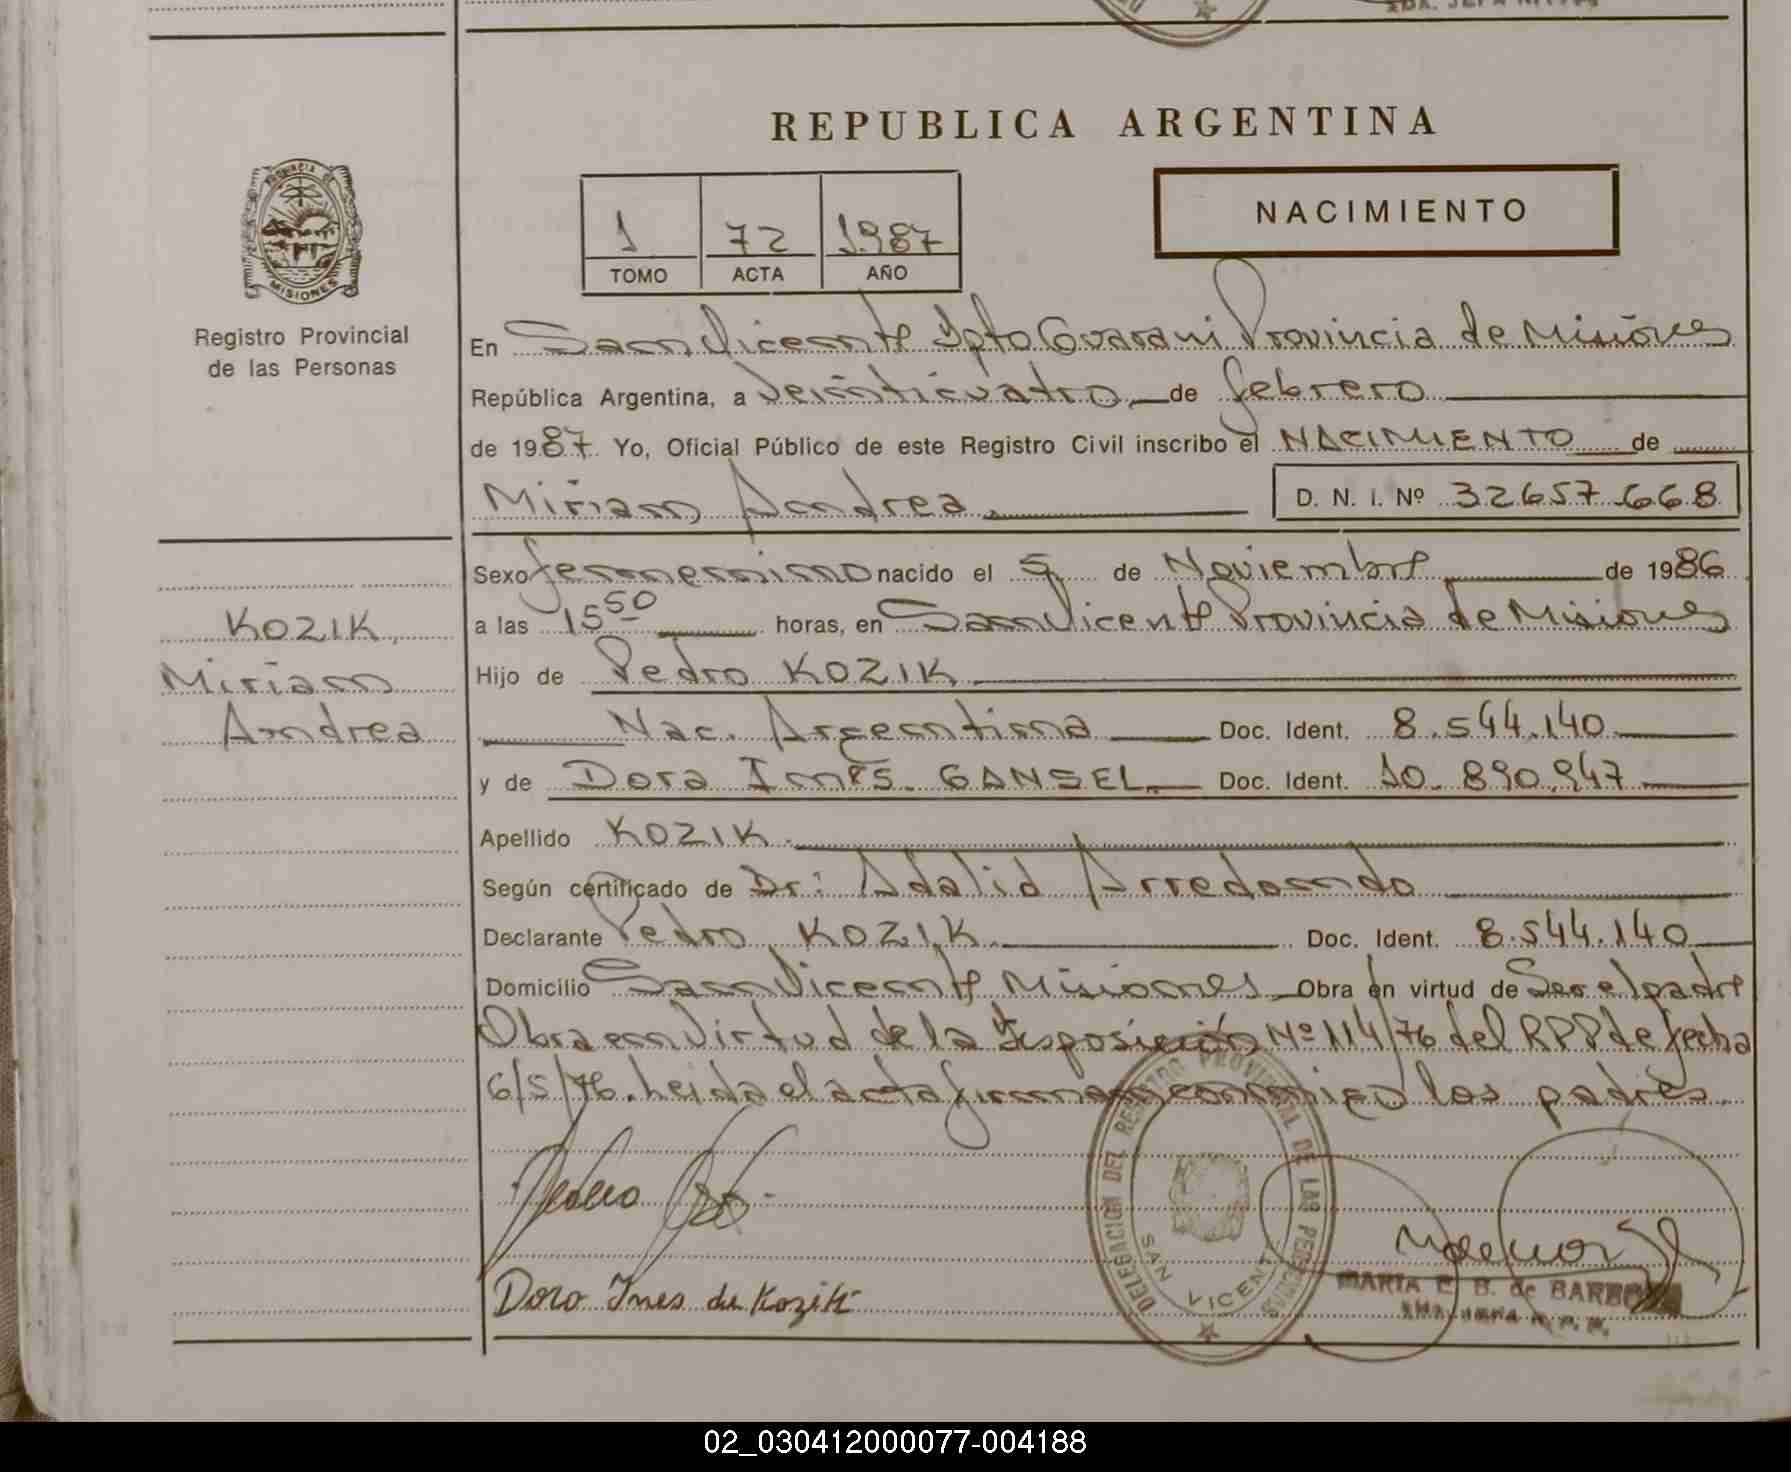 REPUBLICA ARGENTINA
PROVINCIA DE
MISIONES
Registro Provincial
de las Personas
1 72 1987
TOMO ACTA AÑO
NACIMIENTO
En San Vicente Dpto Guarani Provincia de Misiones
República Argentina, a Veinticuatro de febrero
de 1987 Yo, Oficial Público de este Registro Civil inscribo el NACIMIENTO de
Miriam Andrea D. N. I. Nº 32657.668
KOZIK,
Miriam
Andrea
Sexo femenino nacido el 5 de Noviembre de 1986
a las 15 50 horas, en San Vicente Provincia de Misiones
Hijo de Pedro KOZIK
Nac. Argentina Doc. Ident. 8.544.140
y de Dora Inés GANSEL Doc. Ident. 10.890.947
Apellido KOZIK
Según certificado de Dr: Adalid Arredondo
Declarante Pedro KOZIK Doc. Ident. 8.544.140
Domicilio San Vicente Misiones Obra en virtud de Ser el padre
Obra en Virtud de la Disposición Nº 114/76 del RPP de fecha
6/5/76. Leida el acta firman conmigo los padres.
Pedro
Dora Ines de Kozik
DELEGACION DEL REGISTRO PROVINCIAL DE LAS PERSONAS
SAN VICENTE
MARIA E. B. de BARBOZA
02_030412000077-004188